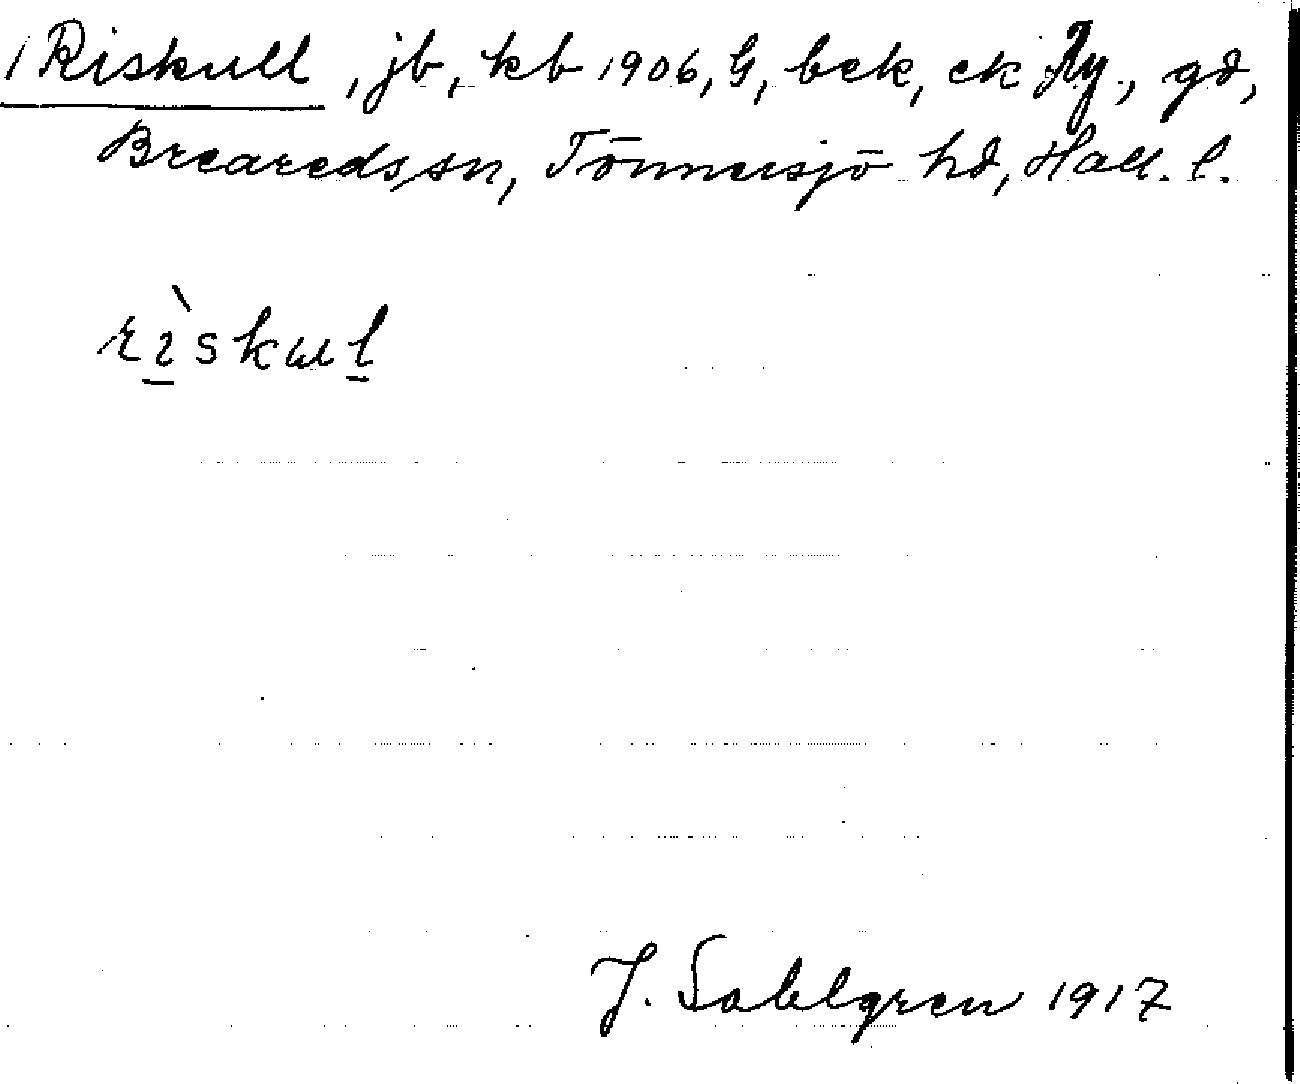 / Riskull, jb, kb 1906, G, bek, ek Ry., gd,
Breareds sn, Tönnersjö hd, Hall. l.
rìskul
J. Sahlgren 1917